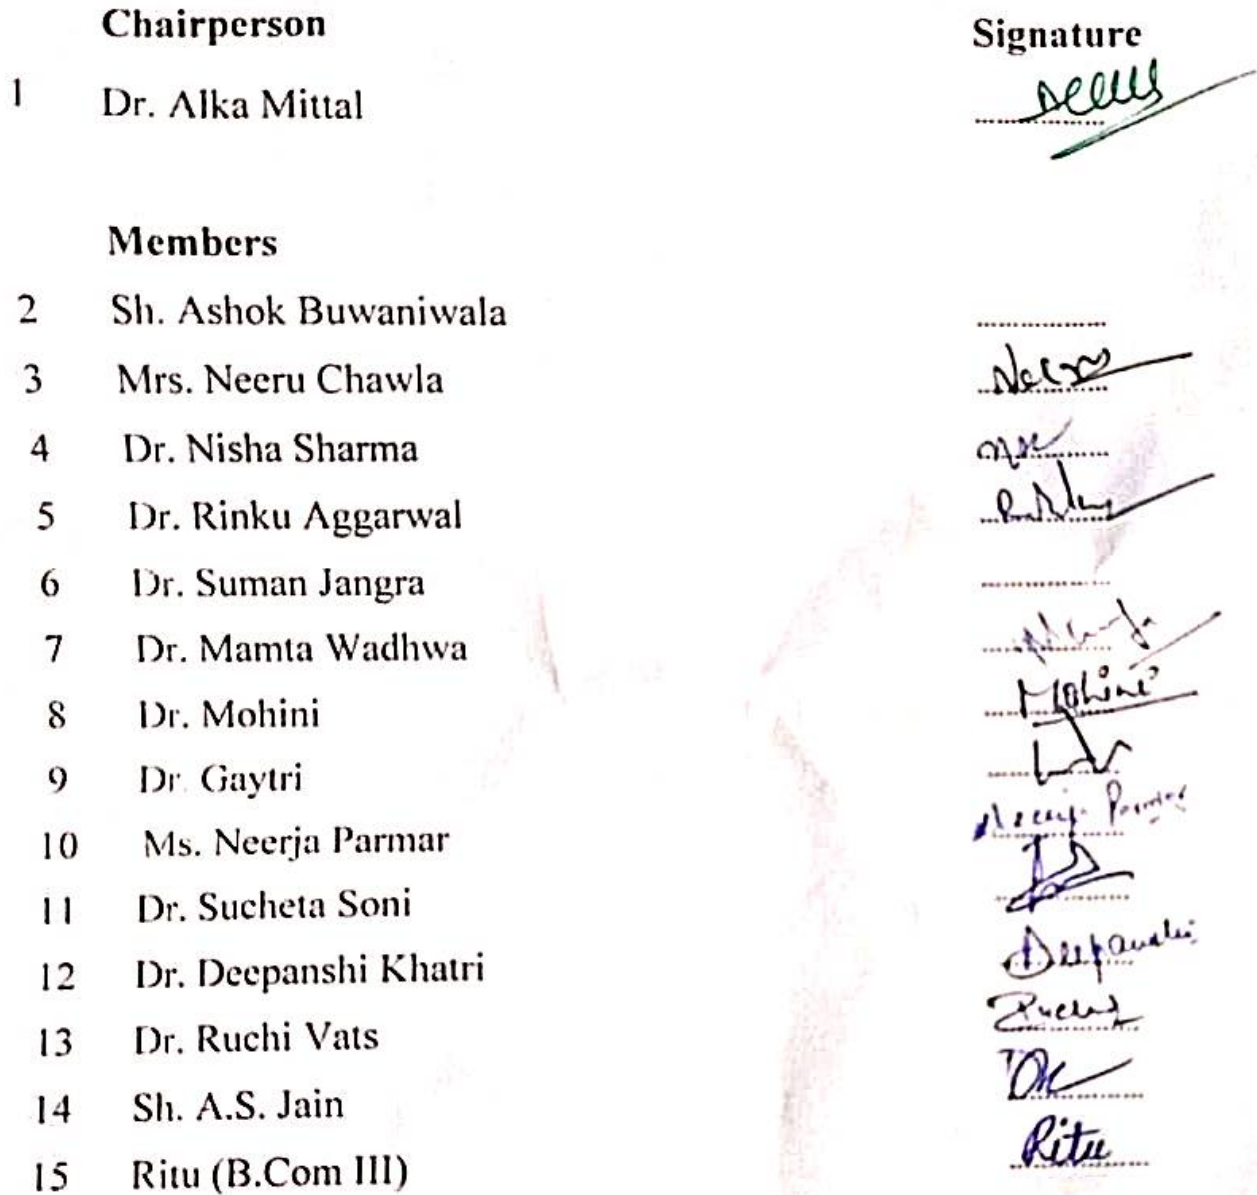 Chairperson Signature
1 Dr. Alka Mittal
Members
2 Sh. Ashok Buwaniwala ..................
3 Mrs. Neeru Chawla
4 Dr. Nisha Sharma
5 Dr. Rinku Aggarwal
6 Dr. Suman Jangra ..................
7 Dr. Mamta Wadhwa
8 Dr. Mohini Mohini
9 Dr. Gaytri
10 Ms. Neerja Parmar Neerja Parmar
11 Dr. Sucheta Soni
12 Dr. Deepanshi Khatri Deepanshi
13 Dr. Ruchi Vats
14 Sh. A.S. Jain
15 Ritu (B.Com III) Ritu